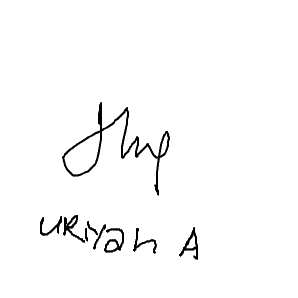 URiyah A